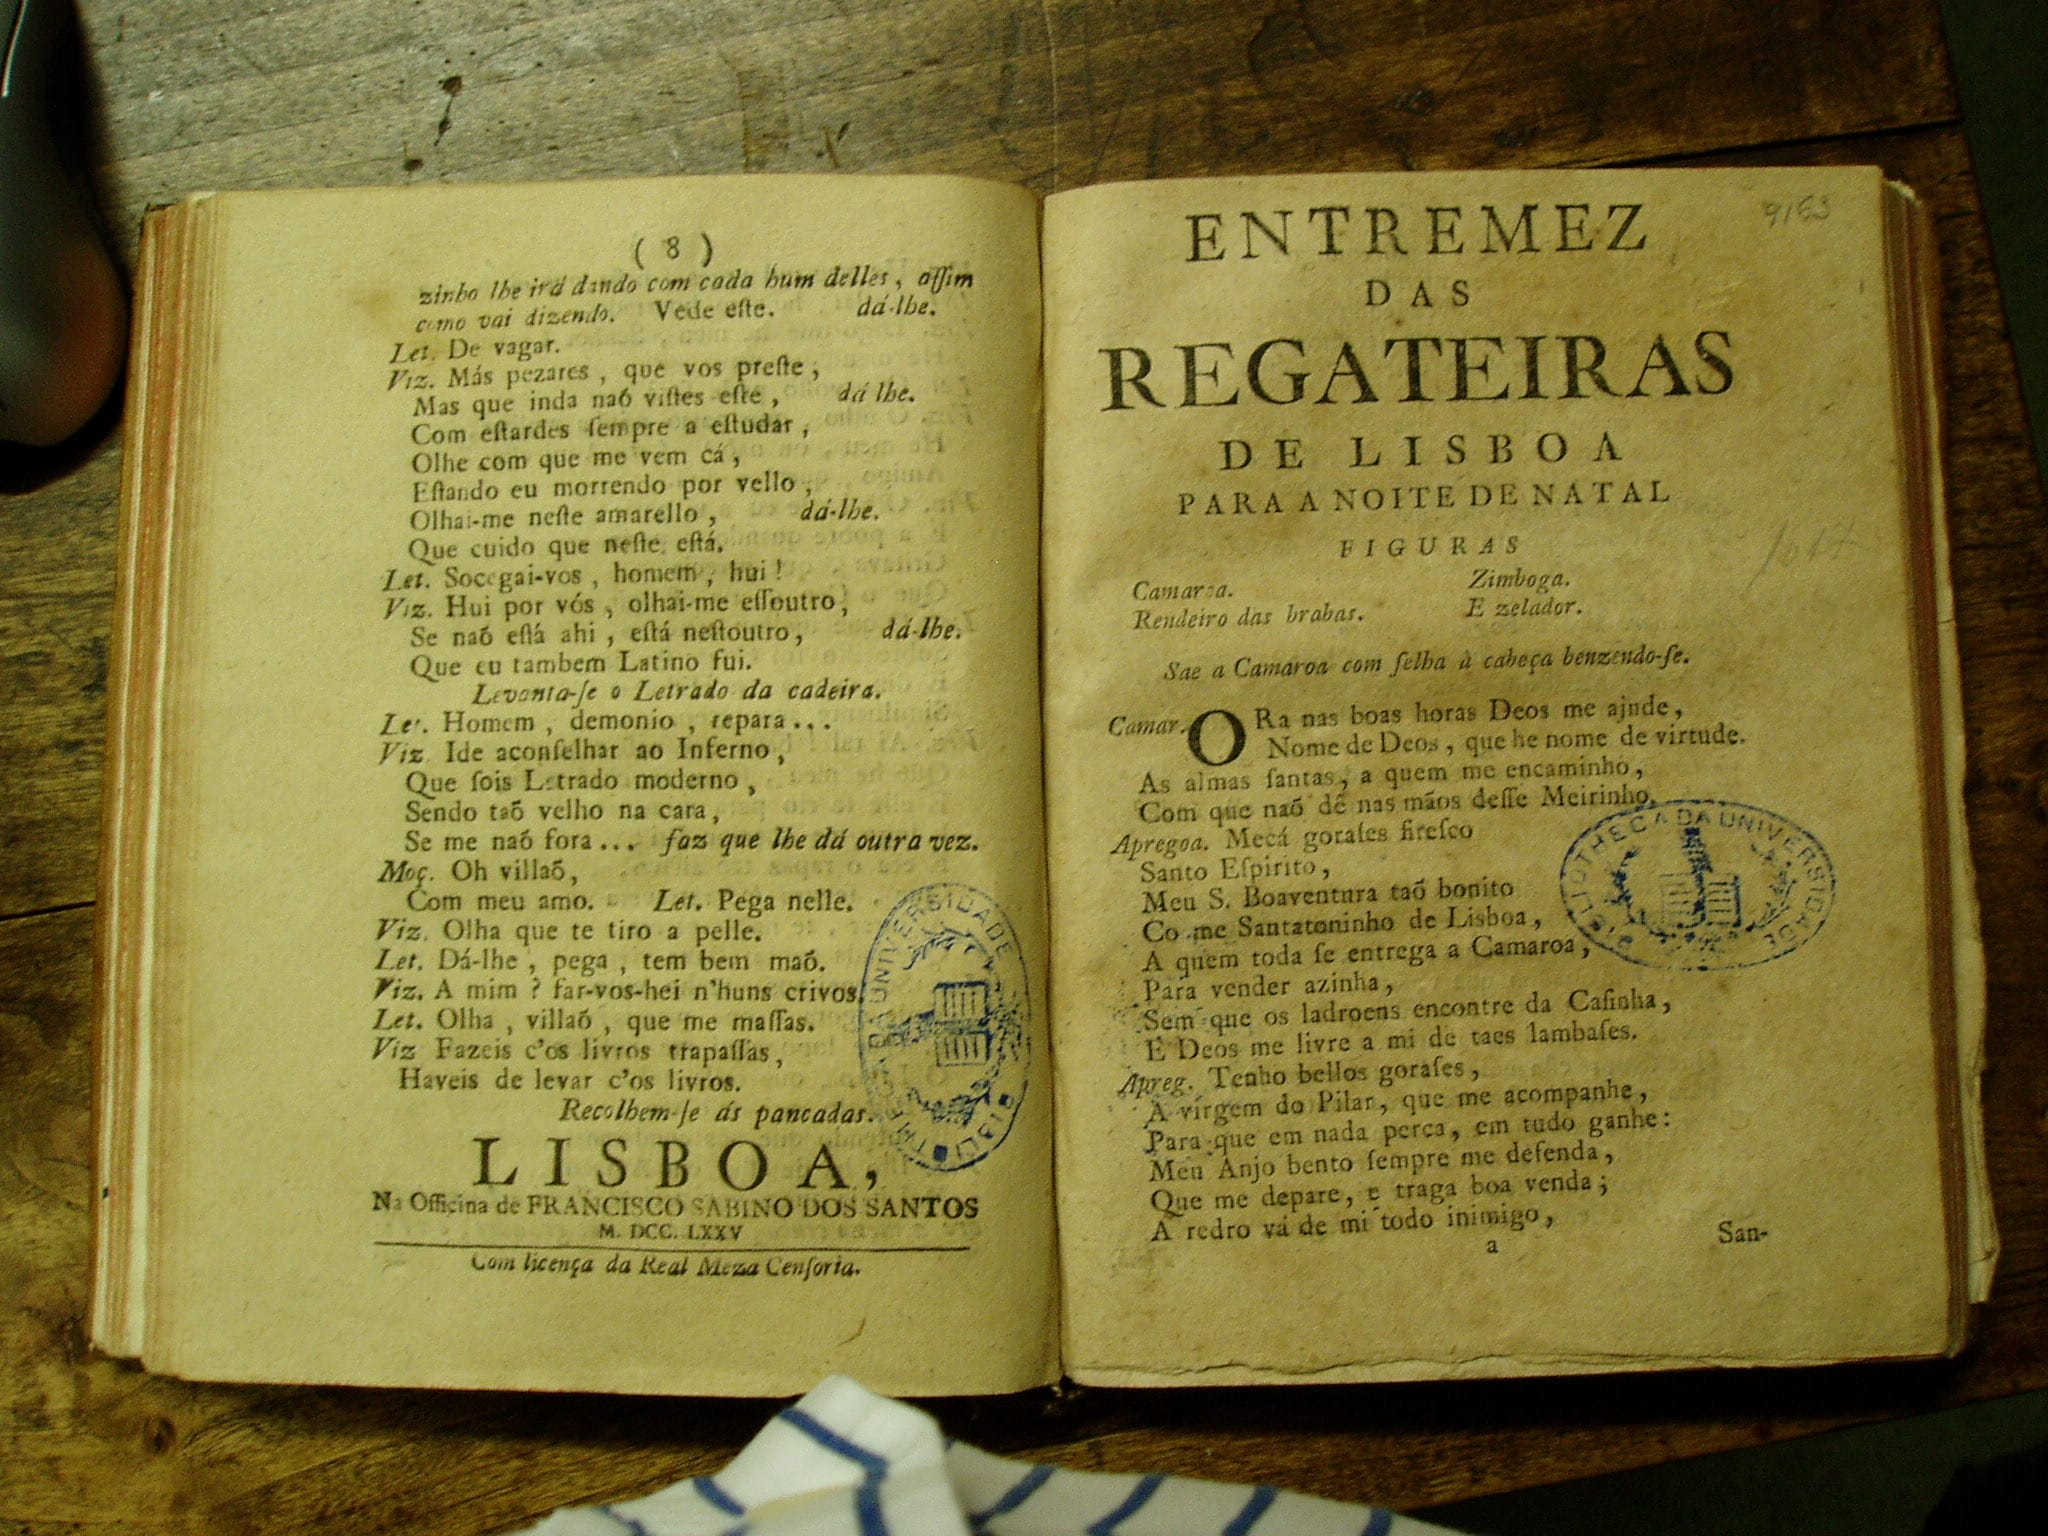 ( 8 )
zinho lhe irá dando com cada hum delles, aſſim
como vai dizendo. Vede eſte. dá-lhe.
Let. De vagar.
Viz. Más pezares, que vos preſte,
Mas que inda naõ viſtes eſte, dá lhe.
Com eſtardes ſempre a eſtudar,
Olhe com que me vem cá,
Eſtando eu morrendo por vello,
Olhai-me neſte amarello, dá-lhe.
Que cuido que neſte eſtá.
Let. Socegai-vos, homem, hui!
Viz. Hui por vós, olhai-me eſſoutro,
Se naõ eſtá ahi, eſtá neſtoutro, dá-lhe.
Que eu tambem Latino fui.
Levanta-ſe o Letrado da cadeira.
Let. Homem, demonio, repara...
Viz Ide aconſelhar ao Inferno,
Que ſois Letrado moderno,
Sendo taõ velho na cara,
Se me naõ fora... faz que lhe dá outra vez.
Moç. Oh villaõ,
Com meu amo. Let. Pega nelle.
Viz. Olha que te tiro a pelle.
Let. Dá-lhe, pega, tem bem maõ.
Viz. A mim? far-vos-hei n'huns crivos.
Let. Olha, villaõ, que me maſſas.
Viz Fazeis c'os livros trapaſſas,
Haveis de levar c'os livros.
Recolhem-ſe ás pancadas.
LISBOA,
Na Officina de FRANCISCO SABINO DOS SANTOS
M. DCC. LXXV
Com licença da Real Meza Cenſoria.
DA UNIVERSIDADE
9163
ENTREMEZ
DAS
REGATEIRAS
DE LISBOA
PARA A NOITE DE NATAL
FIGURAS
Camaroa. Zimboga.
Rendeiro das brabas. E zelador.
Sae a Camaroa com ſelha à cabeça benzendo-ſe.
Camar. ORa nas boas horas Deos me ajude,
Nome de Deos, que he nome de virtude.
As almas ſantas, a quem me encaminho,
Com que naõ dê nas mãos deſſe Meirinho,
Apregoa. Mecá goraſes fireſco
Santo Eſpirito,
Meu S. Boaventura taõ bonito
Co me Santatoninho de Lisboa,
A quem toda ſe entrega a Camaroa,
Para vender azinha,
Sem que os ladroens encontre da Caſinha,
E Deos me livre a mi de taes lambaſes.
Apreg. Tenho bellos goraſes,
A virgem do Pilar, que me acompanhe,
Para que em nada perca, em tudo ganhe:
Meu Anjo bento ſempre me defenda,
Que me depare, e traga boa venda;
A redro vá de mi todo inimigo,
a San-
BLIOTHECA DA UNIVERSIDADE